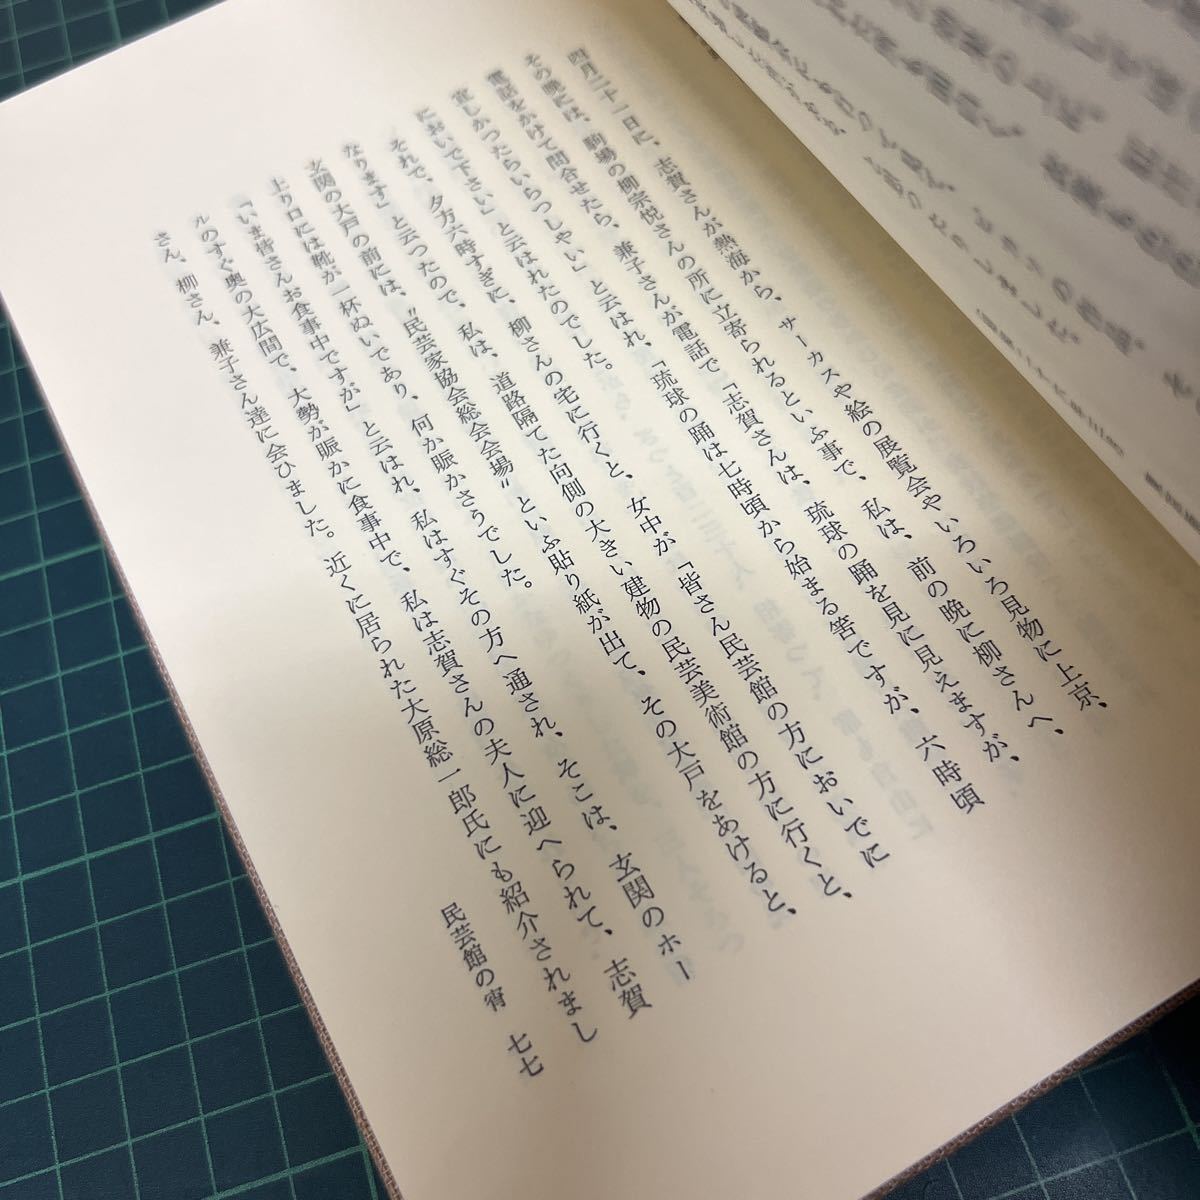 四月二十一日に、志賀さんが熱海から、サーカスや絵の展覧会やいろいろ見物に上京、
その晩には、駒場の柳宗悦さんの所に立寄られるといふ事で、私は、前の晩に柳さんへ、
電話をかけて問合せたら、兼子さんが電話で「志賀さんは、琉球の踊を見に見えますが、
宜しかったらいらつしやい」と云はれ、「琉球の踊は七時頃から始まる筈ですが、六時頃
においで下さい」と云はれたのでした。
それで、夕方六時すぎに、柳さんの宅に行くと、女中が「皆さん民芸館の方においでに
なります」と云つたので、私は、道路隔てた向側の大きい建物の民芸美術館の方に行くと、
玄関の大戸の前には、〝民芸家協会総会会場〟といふ貼り紙が出て、その大戸をあけると、
上り口には靴が一杯ぬいであり、何か賑かさうでした。
「いま皆さんお食事中ですが」と云はれ、私はすぐその方へ通され、そこは、玄関のホー
ルのすぐ奥の大広間で、大勢が賑かに食事中で、私は志賀さんの夫人に迎へられて、志賀
さん、柳さん、兼子さん達に会ひました。近くに居られた大原総一郎氏にも紹介されまし
民芸館の宵 七七